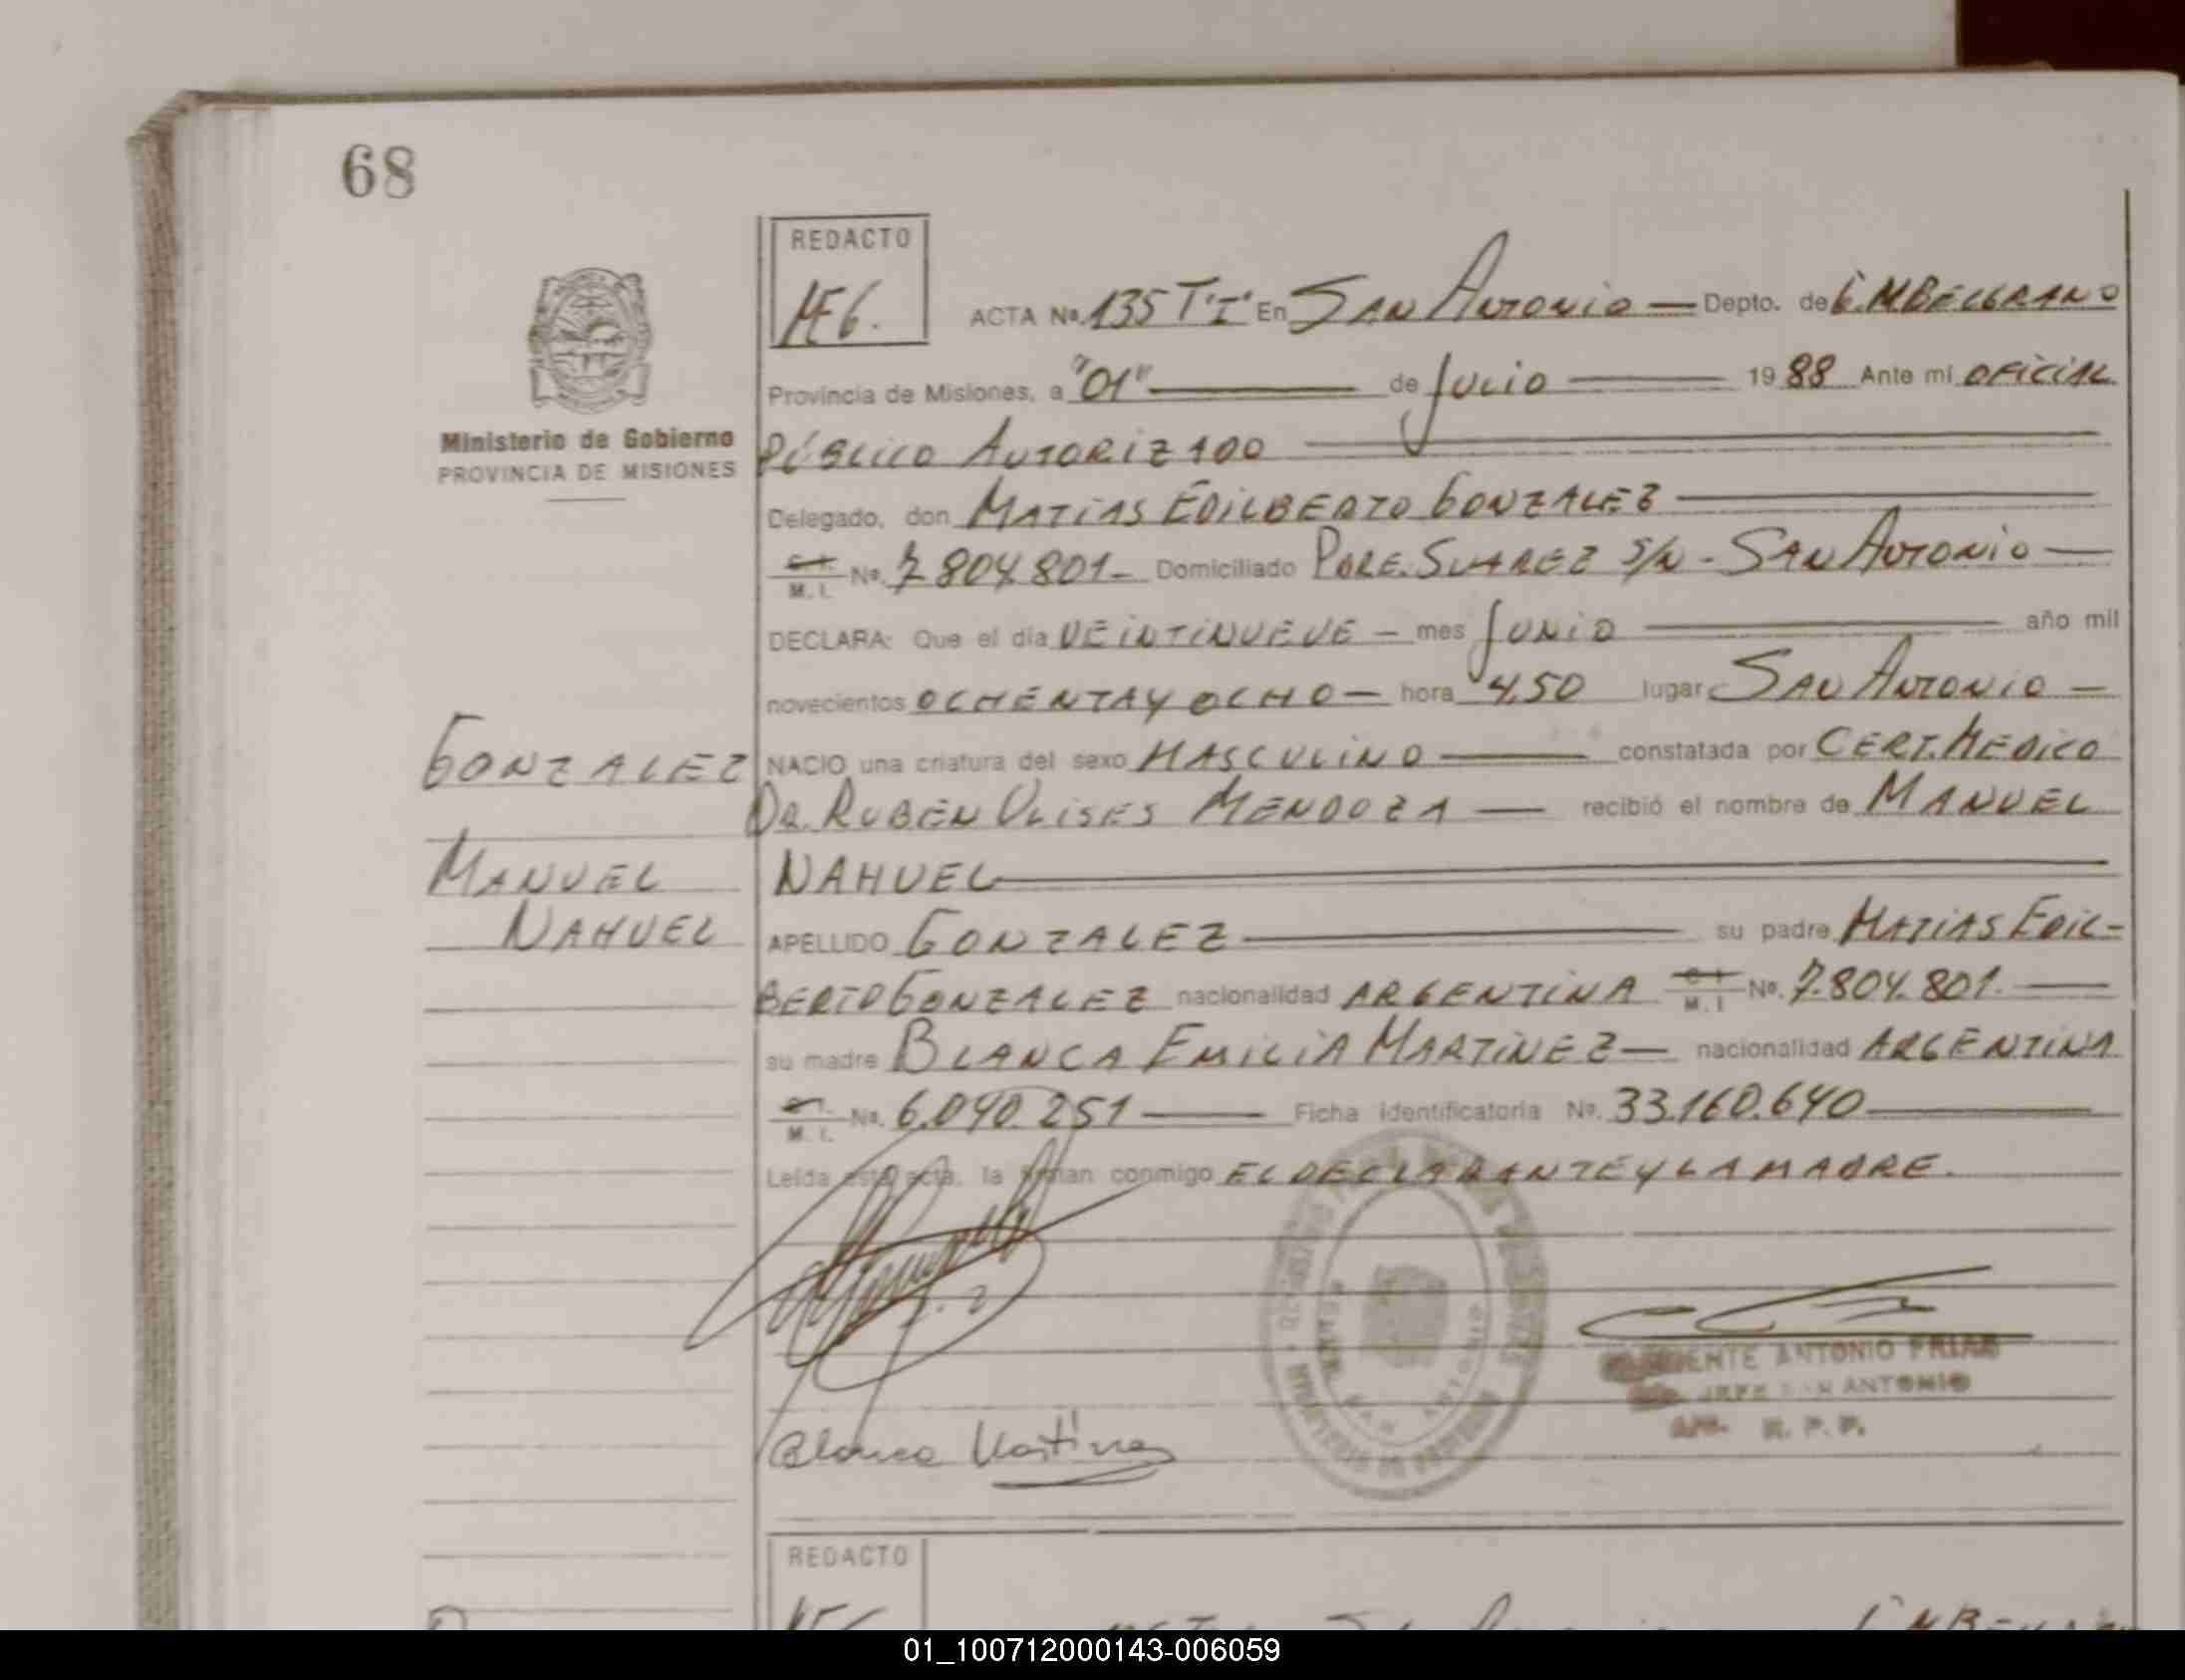 68
REDACTO
ACTA Nº 135 T"I" En SAN ANTONIO — Depto. de G.M.BELGRANO
Provincia de Misiones, a "01" de JULIO 19 88 Ante mi OFICIAL
PÚBLICO AUTORIZADO
Ministerio de Gobierno
PROVINCIA DE MISIONES
Delegado, don MATIAS EDILBERTO GONZALEZ
M. I. Nº 7.804.801 — Domiciliado PDRE. SUAREZ S/N - SAN ANTONIO —
DECLARA: Que el día VEINTINUEVE — mes JUNIO año mil
novecientos OCHENTA Y OCHO — hora 4,50 lugar SAN ANTONIO —
GONZALEZ
NACIO una criatura del sexo MASCULINO constatada por CERT. MEDICO
DR. RUBEN ULISES MENDOZA — recibió el nombre de MANUEL
MANUEL
NAHUEL
NAHUEL
APELLIDO GONZALEZ su padre MATIAS EDIL-
BERTO GONZALEZ nacionalidad ARGENTINA M. I Nº 7.804.801. —
su madre BLANCA EMILIA MARTINEZ — nacionalidad ARGENTINA
M. I. Nº 6.040.251 — Ficha identificatoria Nº 33.160.640
Leída esta acta, la firman conmigo EL DECLARANTE Y LA MADRE.
ANTONIO FRIAS
JEFE SAN ANTONIO
R. P. P.
Blanca Martinez
REDACTO
01_100712000143-006059